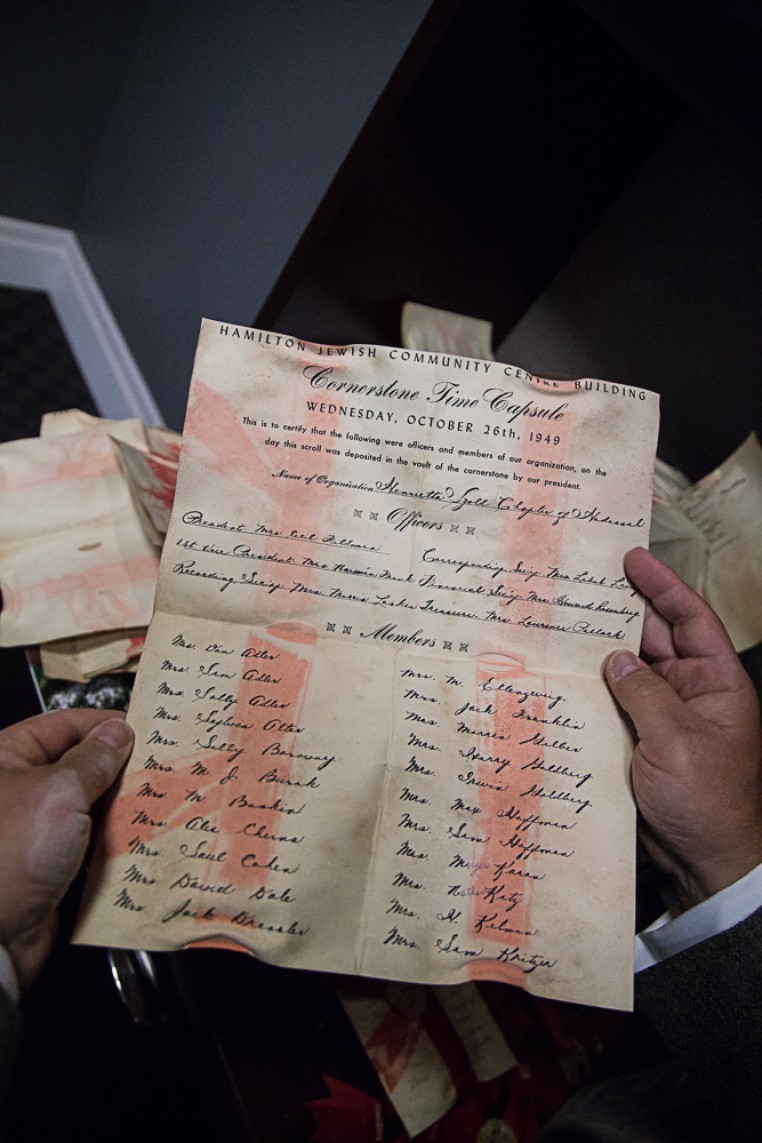 HAMILTON JEWISH COMMUNITY CENTRE BUILDING
Cornerstone Time Capsule
WEDNESDAY, OCTOBER 26th, 1949
This is to certify that the following were officers and members of our organization, on the
day this scroll was deposited in the vault of the cornerstone by our president.
Name of Organization Henrietta Szold Chapter of Hadassah
Officers
President: Mrs. Feldman
Corresponding Sec'y: Mrs.
1st Vice President: Mrs. Norman Financial Sec'y: Mrs. Rosenberg
Recording Sec'y: Mrs. Morris Laskin Treasurer: Mrs. Laurence Pollock
Members
Mrs. Dan Adler
Mrs. Sam Adler
Mrs. Sally Adler
Mrs. Sylvia Alter
Mrs. Solly
Mrs. M. J. Burak
Mrs. M. Baskin
Mrs. Abe
Mrs. Saul Cohen
Mrs. David Dale
Mrs. Jack Dressler
Mrs. M. Ellenzweig
Mrs. Jack Franklin
Mrs. Morris Geller
Mrs. Harry Goldberg
Mrs. Irwin Goldberg
Mrs. Max Hoffman
Mrs. Sam Hoffman
Mrs. Meyer
Mrs. Nathan Katz
Mrs. H. Kelman
Mrs. Sam Kritzer